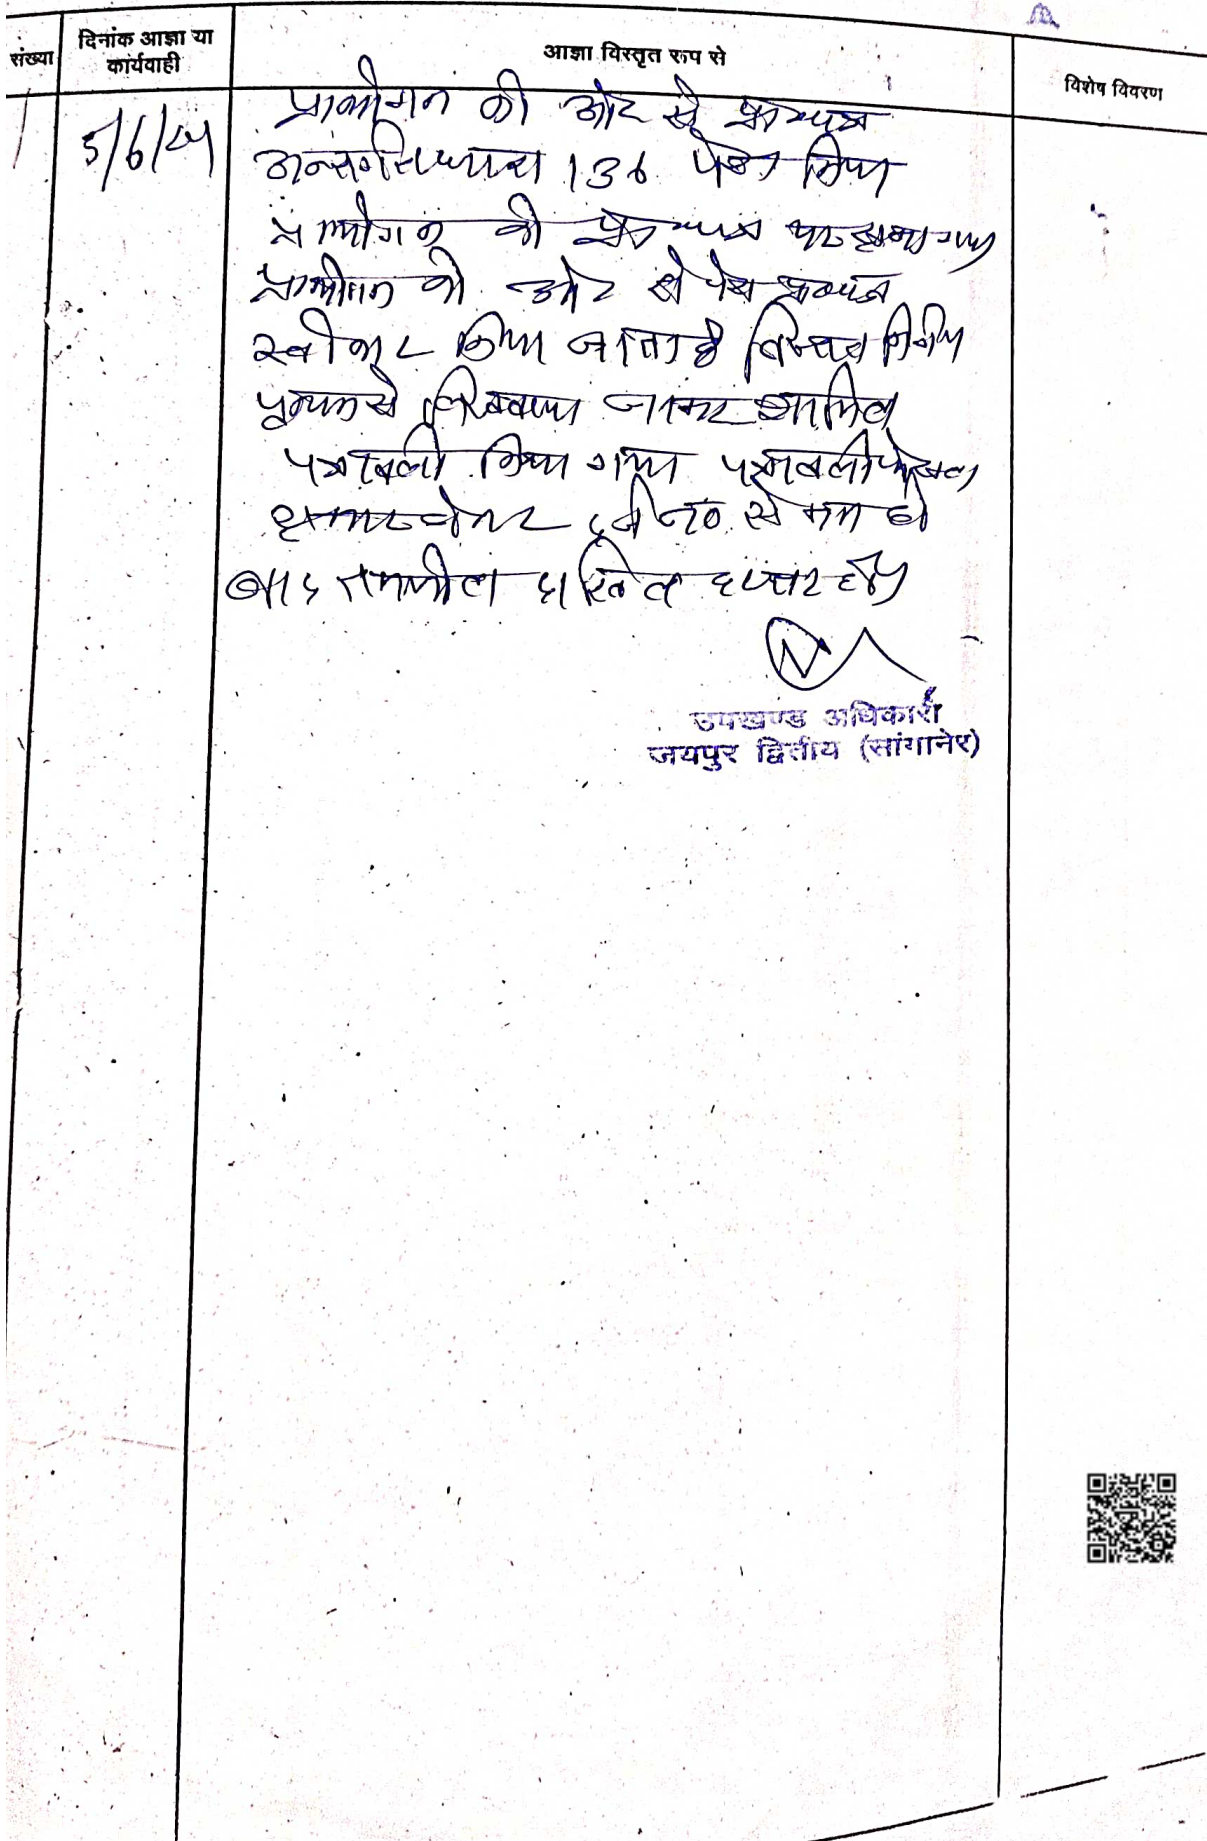 संख्या
दिनांक आज्ञा या
कार्यवाही
आज्ञा विस्तृत रूप से
विशेष विवरण
5/6/24
प्रार्थीगन की ओर से
अन्तर्गत धारा 136 पेश किया
प्रार्थीगन को
प्रार्थीगन की ओर से पेश
स्वीकार किया जाता है विस्तृत निर्णय
पृथक से लिखवाया जाकर शामिल
पत्रावली किया गया पत्रावली फैसल
शुमार होकर दर्ज नं0 से कम हो
बाद तकमील दाखिल दफ्तर हो।
उपखण्ड अधिकारी
जयपुर द्वितीय (सांगानेर)